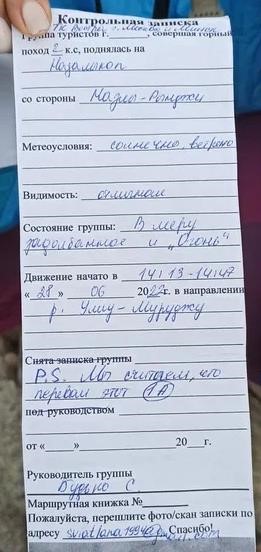 Контрольная записка
Группа туристов г. Москва и Минск, совершая горный
поход 2 к.с, поднялась на
Назалыкол
со стороны Мазлы-Рынджи
Метеоусловия: солнечно, ветрено
Видимость: отличная
Состояние группы: В меру
задолбанное и "Огонь"
Движение начато в 14:13-14:47
« 28 » 06 2022г. в направлении
р. Улиу-Муруджу
Снята записка группы
P.S. Мы считаем, что
перевал этот 1А
под руководством
от « » 20 г.
Руководитель группы
С
Маршрутная книжка №
Пожалуйста, перешлите фото/скан записки по
адресу Спасибо!